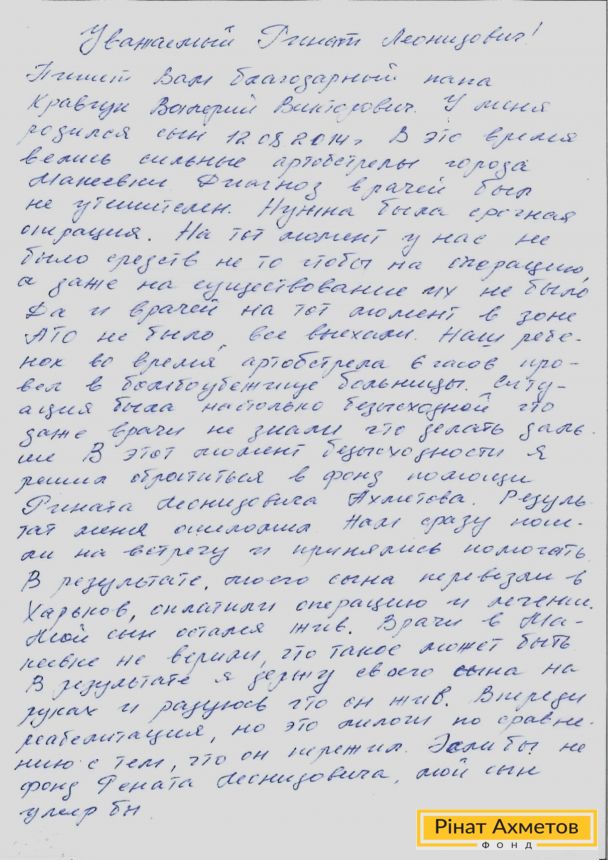 Уважаемый Ринат Леонидович!
Пишет Вам благодарный папа
Кравчук Валерий Викторович. У меня
родился сын 12 08 2014г В это время
велись сильные артобстрелы города
Макеевки Диагноз врачей был
не утешителен. Нужна была срочная
операция. На тот момент у нас не
было средств не то чтобы на операцию,
а даже на существование их не было
Да и врачей на тот момент в зоне
АТО не было, все выехали. Наш ребе-
нок во время артобстрела 6 часов про-
вел в бомбоубежище больницы. Ситу-
ация была настолько безысходной, что
даже врачи не знали что делать даль-
ше В этот момент безысходности я
решил обратиться в фонд помощи
Рината Леонидовича Ахметова. Резуль-
тат меня ошеломил Нам сразу пош-
ли на встречу и принялись помогать.
В результате, моего сына перевезли в
Харьков, оплатили операцию и лечение.
Мой сын остался жив. Врачи в Ма-
кеевке не верили, что такое может быть
В результате я держу своего сына на
руках и радуюсь что он жив. Впереди
реабелитация, но это мелочи по сравне-
нию с тем, что он пережил. Если бы не
фонд Рената Леонидовича, мой сын
умер бы
Рінат Ахметов
ФОНД